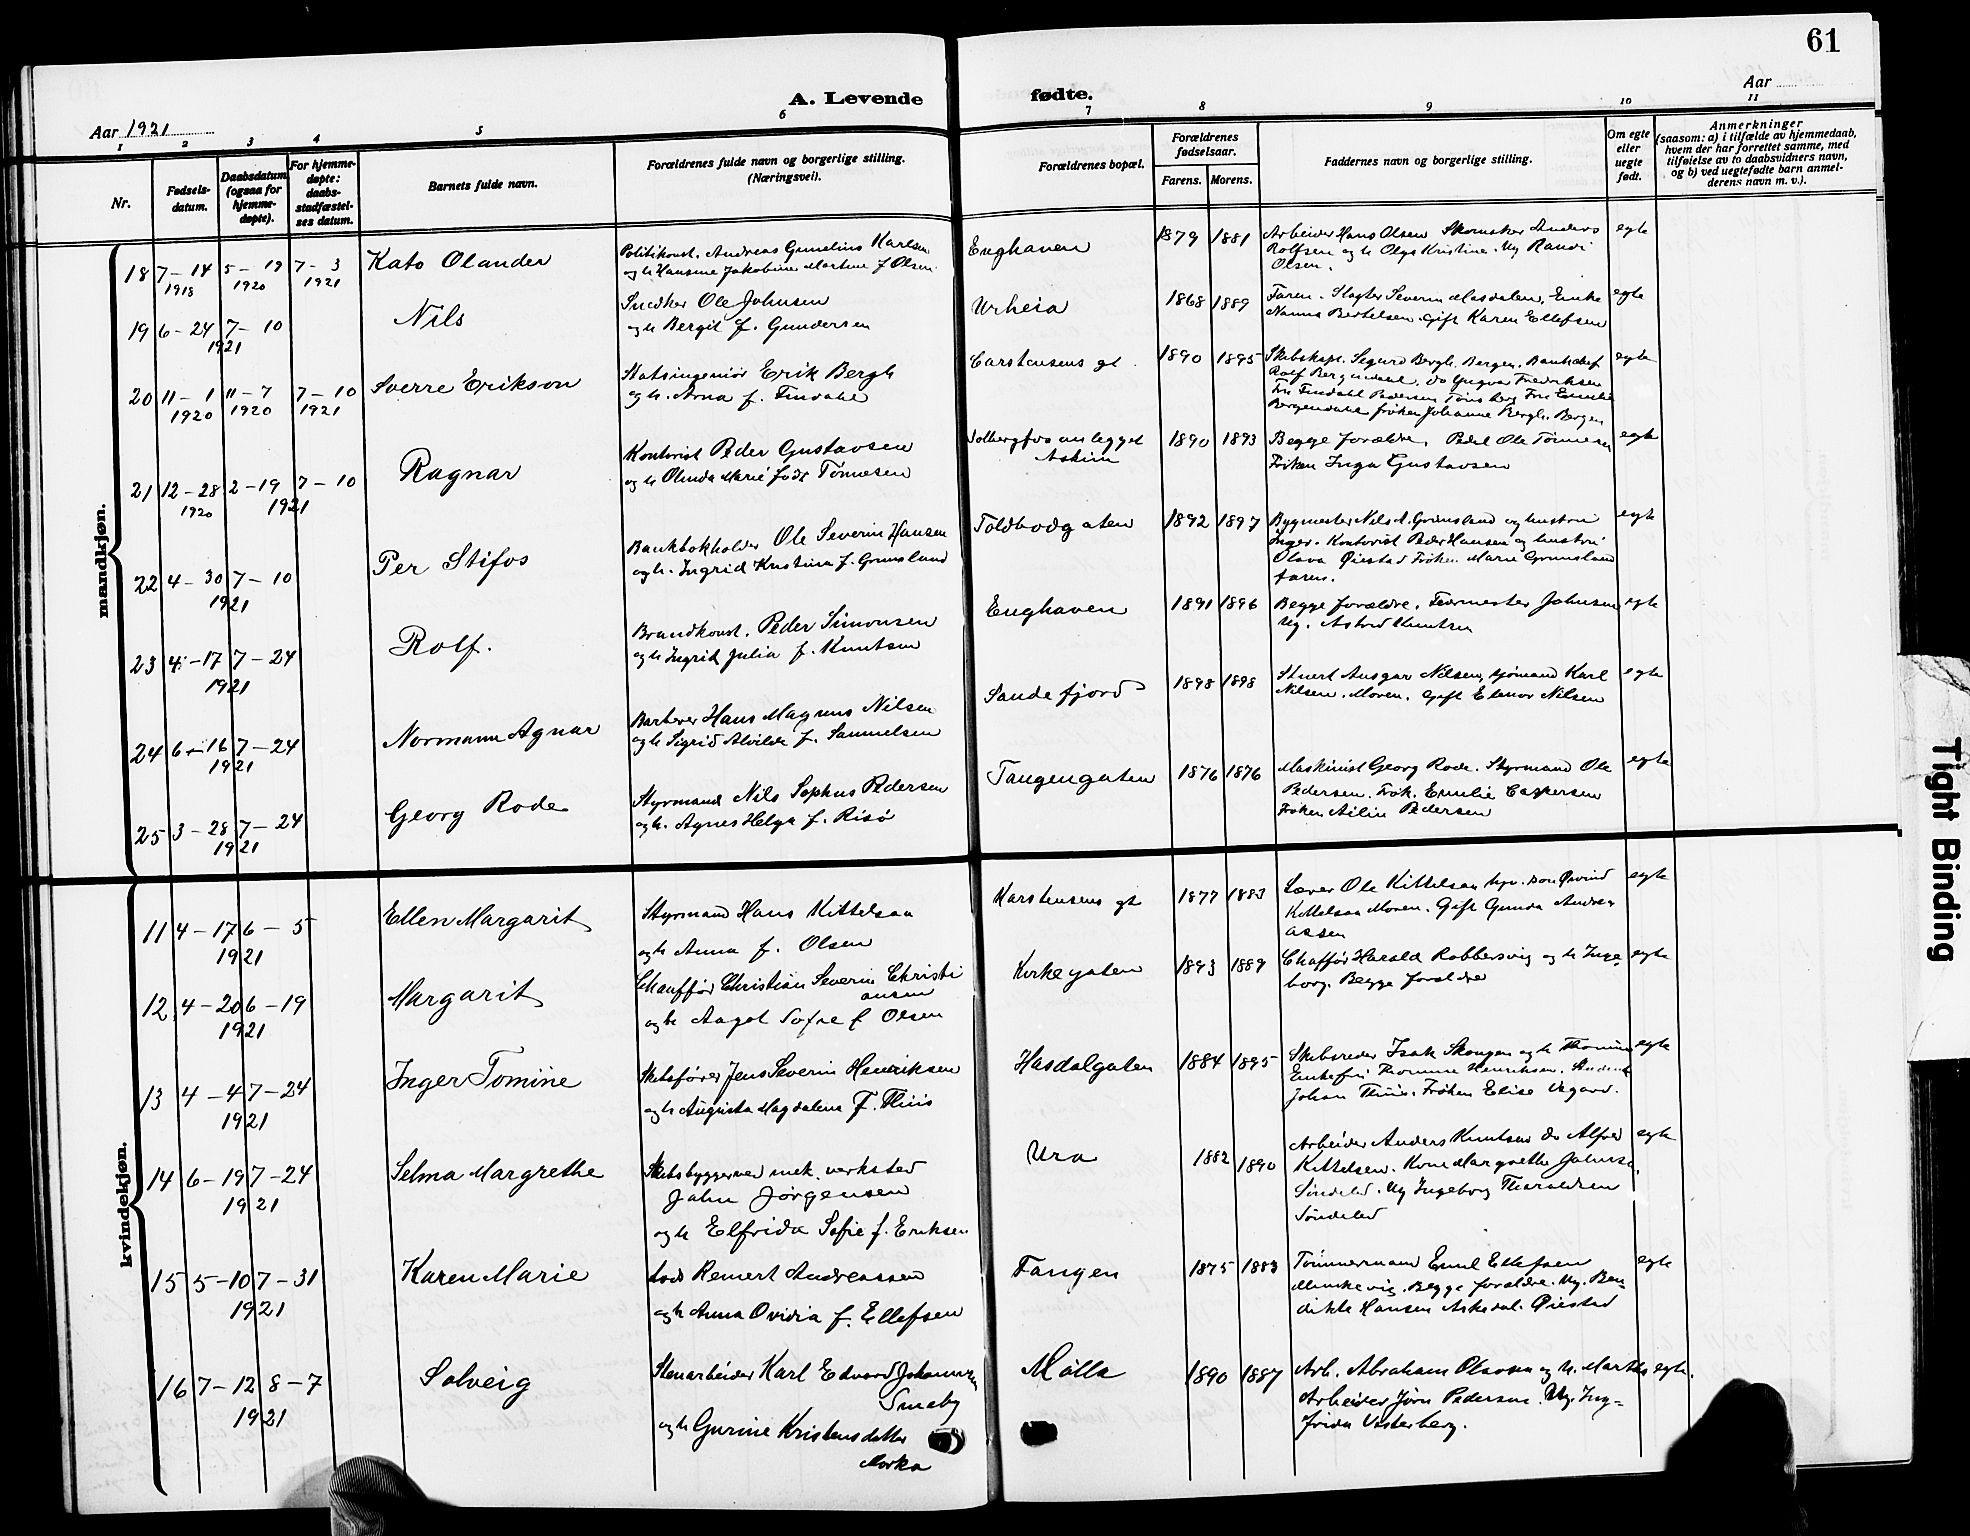 61
A. Levende fødte.
Aar 1921
Aar
1 2 3 4 5 6 7 8 9 10 11
Nr.
Fødsels-
datum.
Daabsdatum
(ogsaa for
hjemme-
døpte).
For hjemme-
døpte:
daabs-
stadfæstel-
ses datum.
Barnets fulde navn.
Forældrenes fulde navn og borgerlige stilling.
(Næringsvei).
Forældrenes bopæl.
Forældrenes
fødselsaar.
Farens. Morens.
Faddernes navn og borgerlige stilling.
Om egte
eller
uegte
født.
Anmerkninger
(saasom: a) i tilfælde av hjemmedaab,
hvem der har forrettet samme, med
tilføielse av to daabsvidners navn,
og b) ved uegtefødte barn anmel-
derens navn m. v.).
mandkjøn.
18 7–14 1918 5–19 1920 7–3 1921
Kato Olander
Politikonst. Andreas Gunelius Karlsen
og h Hansine Jakobine Martine f Olsen
Enghaven
1879 1881
Arbeider Hans Olsen Skomaker Anders
Rolfsen og h Olga Kristine. Ug Randi
Olsen.
egte
19 6–24 7–10
1921
Nils
Snedker Ole Johnsen
og h Bergit f. Gundersen
Urheia
1868 1889
Faren. Slagter Severin Masdalen, Enke
Nanna Bertelsen. Gift Karen Ellefsen
egte
20 11–1 1920 11–7 1920 7–10 1921
Sverre Erikson
Statsingeniør Erik Bergh
og h. Arna f. Findahl
Carstensens gt.
1890 1895
Skibskapt. Sigurd Bergh. Bergen. Bankchef
Rolf Bergendahl, do Yngvar Fredriksen
Fru Findahl Pedersen Tønsberg Fru Emilie
Bergendahl frøken Johanne Bergh. Bergen
egte
21 12–28 1920 2–19 7–10
1921
Ragnar
Kontorist Peder Gustavsen
og h Olinda Marie født Tønnesen
Solbergfosanlegget
Askim
1890 1893
Begge forældre, Pedel Ole Tønnesen
Frøken Inga Gustavsen
egte
22 4–30 7–10
1921
Per Stifos
Bankbokholder Ole Severin Hansen
og h. Ingrid Kristine f. Grimsland
Toldbodgaten
1892 1897
Bygmester Nils A. Grimsland og hustru
Inger. Kontorist Peder Hansen og hustru
Olava Øiestad Frøken Marie Grimsland
faren.
egte
23 4–17 7–24
1921
Rolf.
Brandkonst. Peder Simonsen
og h Ingrid Julia f. Knutsen
Enghaven
1891 1896
Begge forældre. Formester Johnsen
Ug. Astrid Knutsen
egte
24 6–16 7–24
1921
Normann Agnar
Barberer Hans Magnus Nilsen
og h Sigrid Alvilde f. Samuelsen
Sandefjord
1898 1898
Stuert Ansgar Nilsen, sjømand Karl
Nilsen. Moren. Gift Elenor Nilsen
egte
25 3–28 7–24
1921
Georg Rode
Styrmand Nils Sophus Pedersen
og h. Agnes Helga f. Risö
Tangengaten
1876 1876
Maskinist Georg Rode. Styrmand Ole
Pedersen. Frøk. Emilie Caspersen
Frøken Ailin Pedersen
egte
kvindekjøn.
11 4–17 6–5
1921
Ellen Margarit
Styrmand Hans Kittelsen
og h Anna f. Olsen
Karstensens gt
1877 1883
Lærer Ole Kittelsen son Øivind
Kittelsen Moren. Gift Gunda Andre-
assen
egte
12 4–20 6–19
1921
Margarit
Chauffør Christian Severin Christi
ansen
og h Aagot Sofie f Olsen
Kirkegaten
1893 1889
Chaffør Harald Robbersvig og h Inge-
borg. Begge forældre
egte
13 4–4 7–24
1921
Inger Tomine
Skibsfører Jens Severin Henriksen
og h Augusta Magdalene F. Thiis
Hasdalgaten
1884 1895
Skibsreder Isak Skougen og h Thomine
Enkefru Thomine Henriksen. Student
Johan Thiis. Frøken Elise Vegard.
egte
14 6–19 7–24
1921
Selma Margrethe
Skibsbygger ved mek. verksted
John Jørgensen
og h Elfrida Sofie f. Eriksen
Ura
1882 1890
Arbeider Anders Knutsen do Alfred
Kittelsen. Kone Margrethe Johnsen
Søndeled. Ug Ingeborg Tharaldsen
Søndeled
egte
15 5–10 7–31
1921
Karen Marie
Lods Reinert Andreassen
og h Anna Ovidia f. Ellefsen
Tangen
1875 1883
Tømmermand Emil Ellefsen
Munkevig. Begge forældre. Ug. Ben-
dikte Hansen Askedal. Øiestad
egte
16 7–12 8–7
1921
Solveig
Stenarbeider Karl Edvard Johannesen
Smeby
og h Gurine Kristensdatter
Morka
Mölla
1890 1887
Arb. Abraham Olavsen og h. Marthe
Arbeider Jörn Pedersen. Ug. Ing-
frida Vesterberg.
egte.
Tight Binding